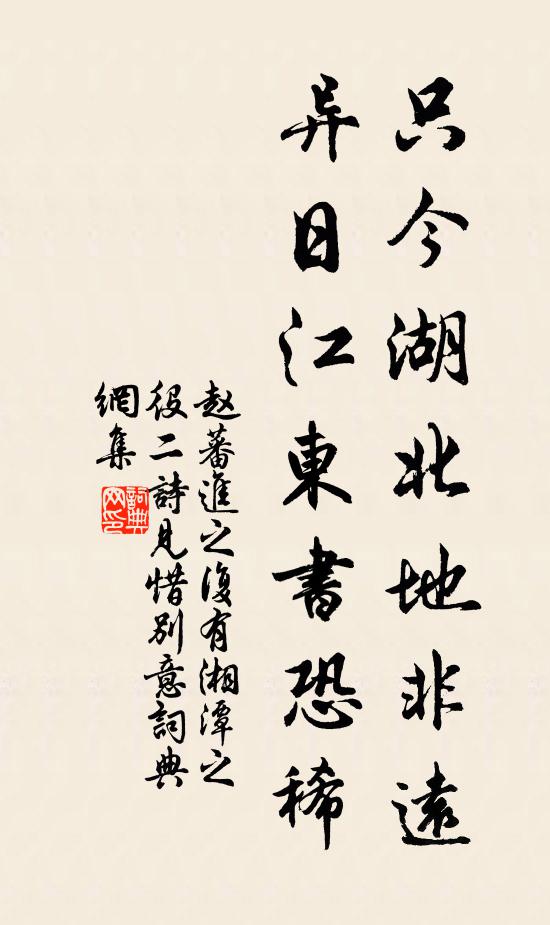 只今湖北地非遠
异日江東書恐稀
赵蕃進之復有湘潭之
役二詩見惜別意詞典
網集
詞典
网印